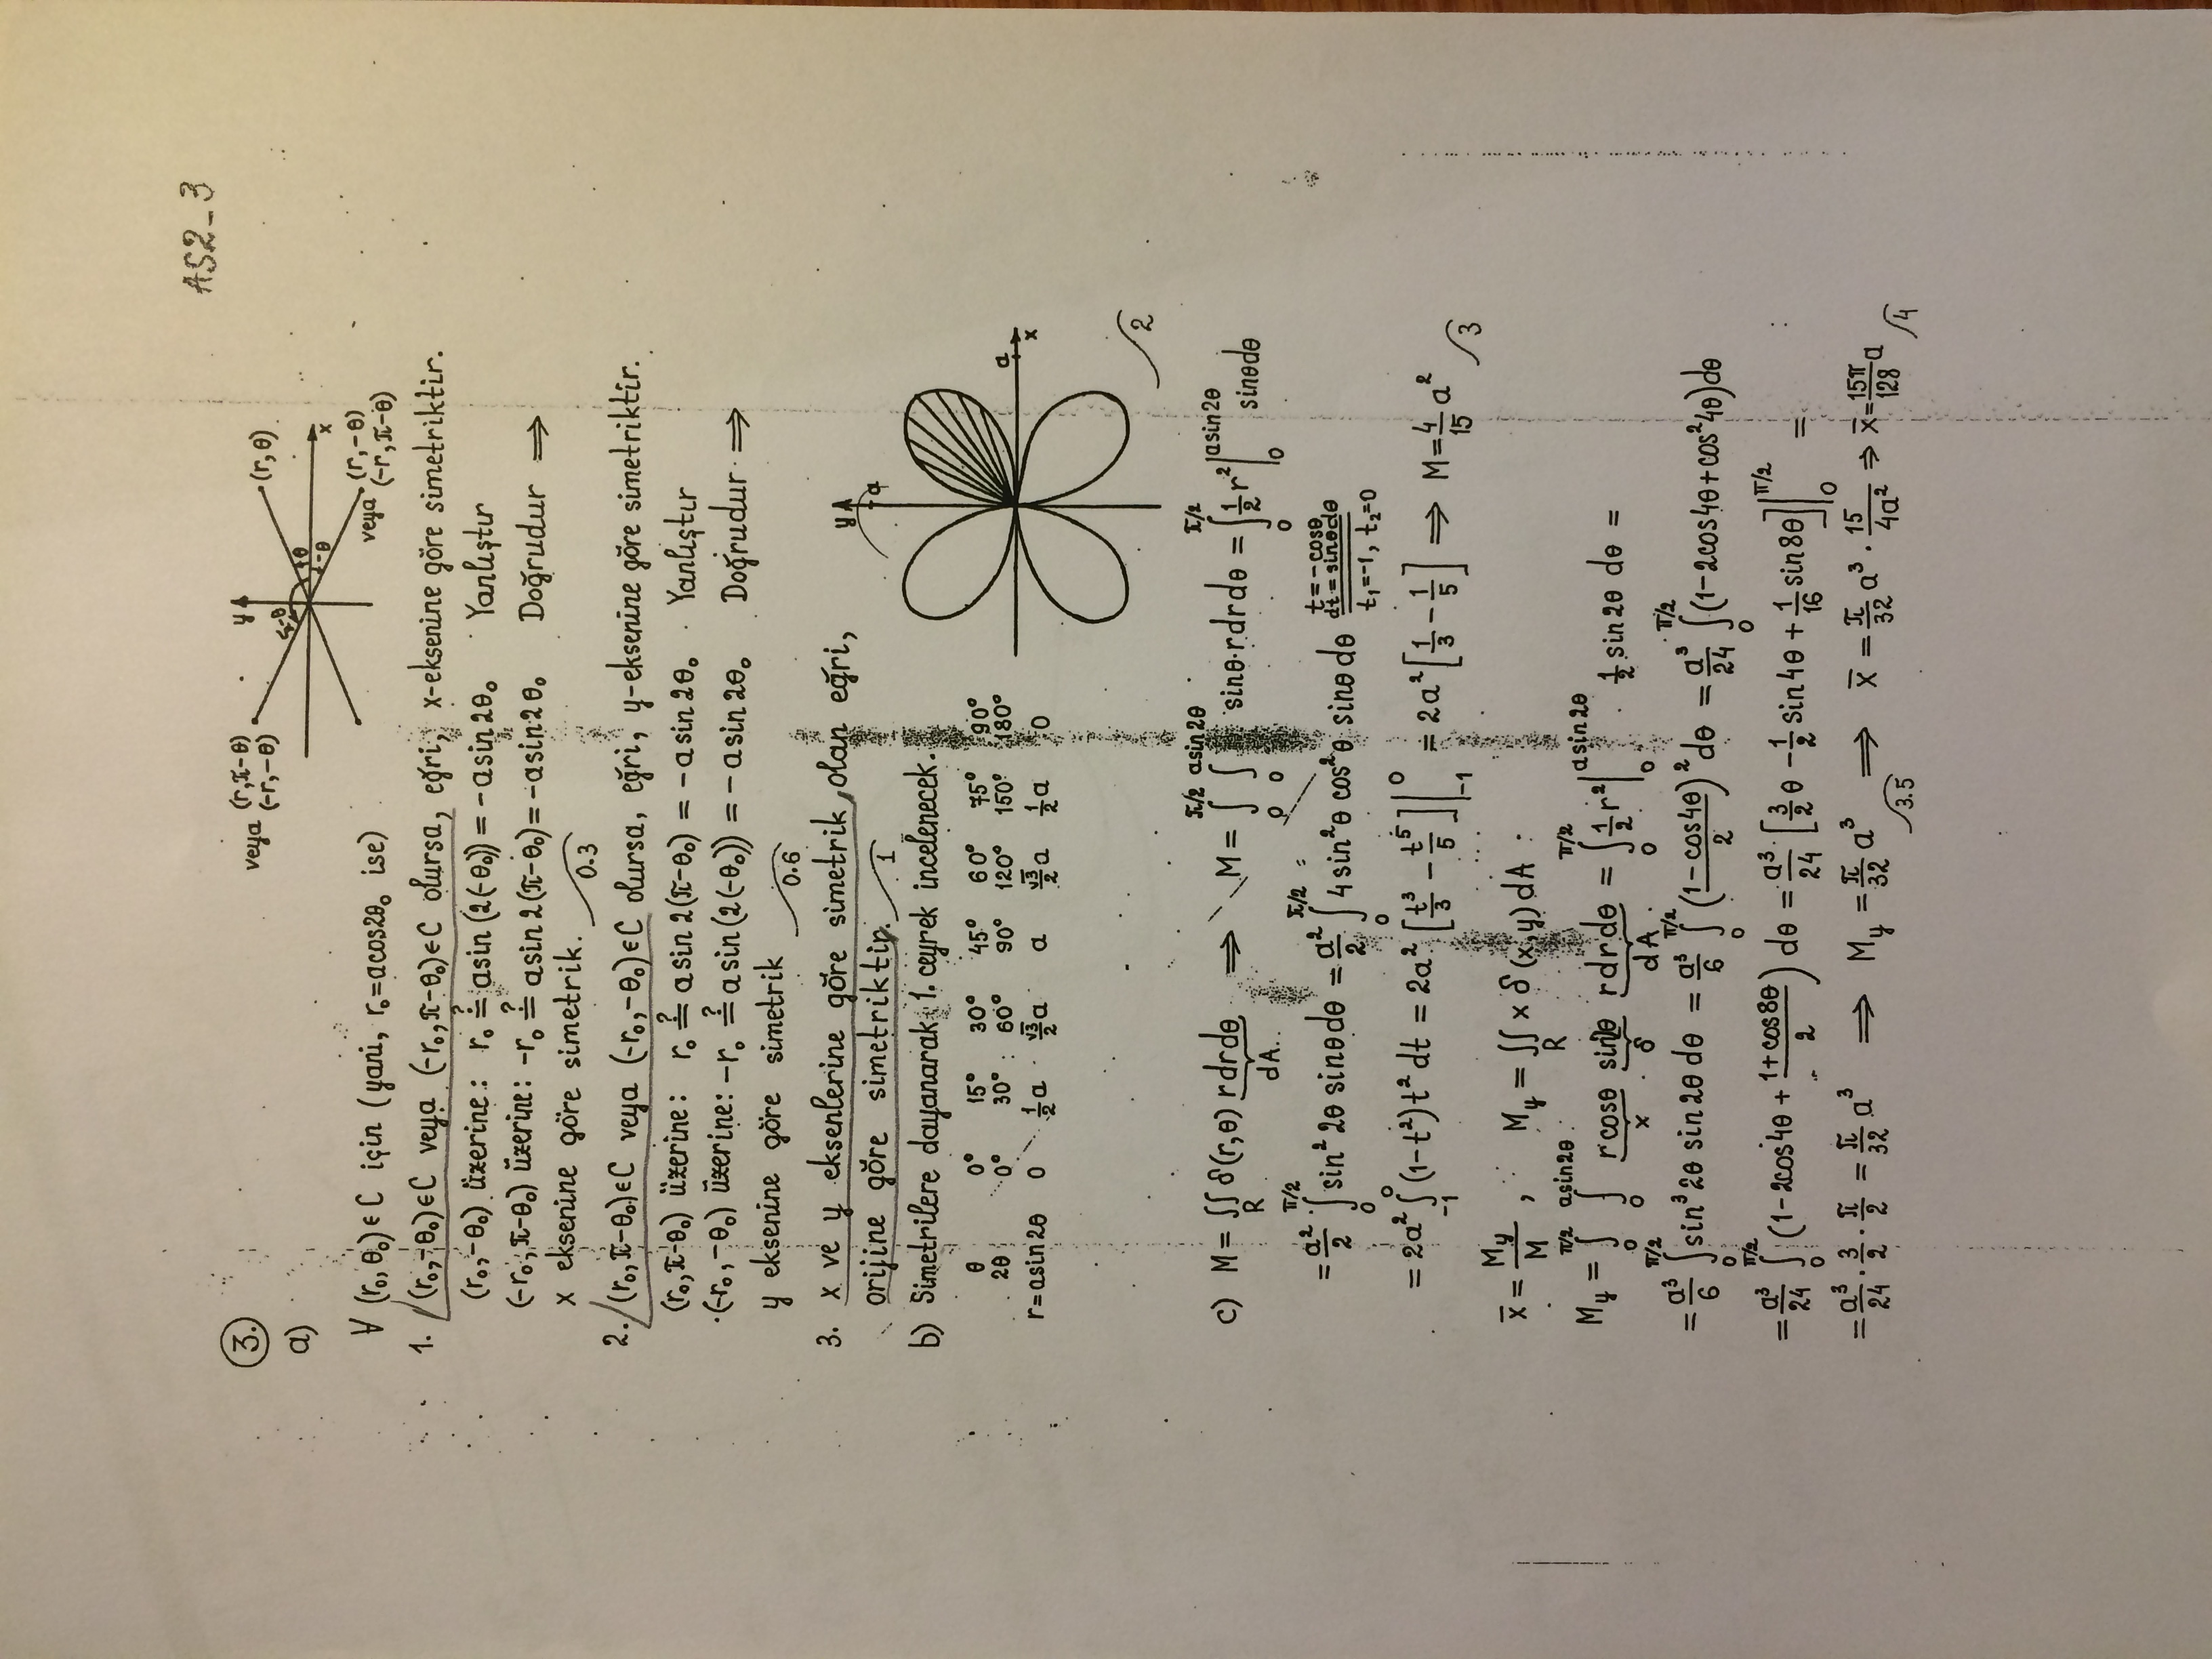 AS2_3
3.
a)
veya (r,π-θ) (-r,-θ)
y
(r,θ)
π-θ
θ
-θ
x
veya (r,-θ) (-r,π-θ)
∀ (r₀,θ₀)∈C için (yani, r₀=acos2θ₀ ise)
1. (r₀,-θ₀)∈C veya (-r₀,π-θ₀)∈C olursa, eğri, x-eksenine göre simetriktir.
(r₀,-θ₀) üzerine: r₀ ≟ asin(2(-θ₀)) = -asin2θ₀ Yanlıştır
(-r₀,π-θ₀) üzerine: -r₀ ≟ asin2(π-θ₀) = -asin2θ₀ Doğrudur ⟹
x eksenine göre simetrik. 0.3
2. (r₀,π-θ₀)∈C veya (-r₀,-θ₀)∈C olursa, eğri, y-eksenine göre simetriktir.
(r₀,π-θ₀) üzerine: r₀ ≟ asin2(π-θ₀) = -asin2θ₀ Yanlıştır
(-r₀,-θ₀) üzerine: -r₀ ≟ asin(2(-θ₀)) = -asin2θ₀ Doğrudur ⟹
y eksenine göre simetrik 0.6
3. x ve y eksenlerine göre simetrik, olan eğri,
orijine göre simetriktir. 1
b) Simetrilere dayanarak 1. ceyrek incelenecek.
θ 0° 15° 30° 45° 60° 75° 90°
2θ 0° 30° 60° 90° 120° 150° 180°
r=asin2θ 0 1/2 a √3/2 a a √3/2 a 1/2 a 0
y
a
a
x
2
c) M = ∬_R δ(r,θ) rdrdθ (dA) ⟹ M = ∫₀^{π/2} ∫₀^{asin2θ} sinθ·rdrdθ = ∫₀^{π/2} 1/2 r² |₀^{asin2θ} sinθdθ
= a²/2 ∫₀^{π/2} sin²2θ sinθdθ = a²/2 ∫₀^{π/2} 4sin²θ cos²θ sinθ dθ t=-cosθ dt=sinθdθ t₁=-1, t₂=0
= 2a² ∫₋₁⁰ (1-t²)t² dt = 2a² [t³/3 - t⁵/5] |₋₁⁰ = 2a² [1/3 - 1/5] ⟹ M = 4/15 a² 3
x̄ = M_y/M , M_y = ∬_R x δ(x,y) dA
M_y = ∫₀^{π/2} ∫₀^{asin2θ} rcosθ (x) sinθ (δ) rdrdθ (dA) = ∫₀^{π/2} 1/2 r² |₀^{asin2θ} 1/2 sin2θ dθ =
= a³/6 ∫₀^{π/2} sin³2θ sin2θ dθ = a³/6 ∫₀^{π/2} ((1-cos4θ)/2)² dθ = a³/24 ∫₀^{π/2} (1-2cos4θ+cos²4θ)dθ
= a³/24 ∫₀^{π/2} (1-2cos4θ + (1+cos8θ)/2) dθ = a³/24 [3/2 θ - 1/2 sin4θ + 1/16 sin8θ] |₀^{π/2} =
= a³/24 · 3/2 · π/2 = π/32 a³ ⟹ M_y = π/32 a³ ⟹ x̄ = π/32 a³ · 15/4a² ⟹ x̄ = 15π/128 a
3.5
4